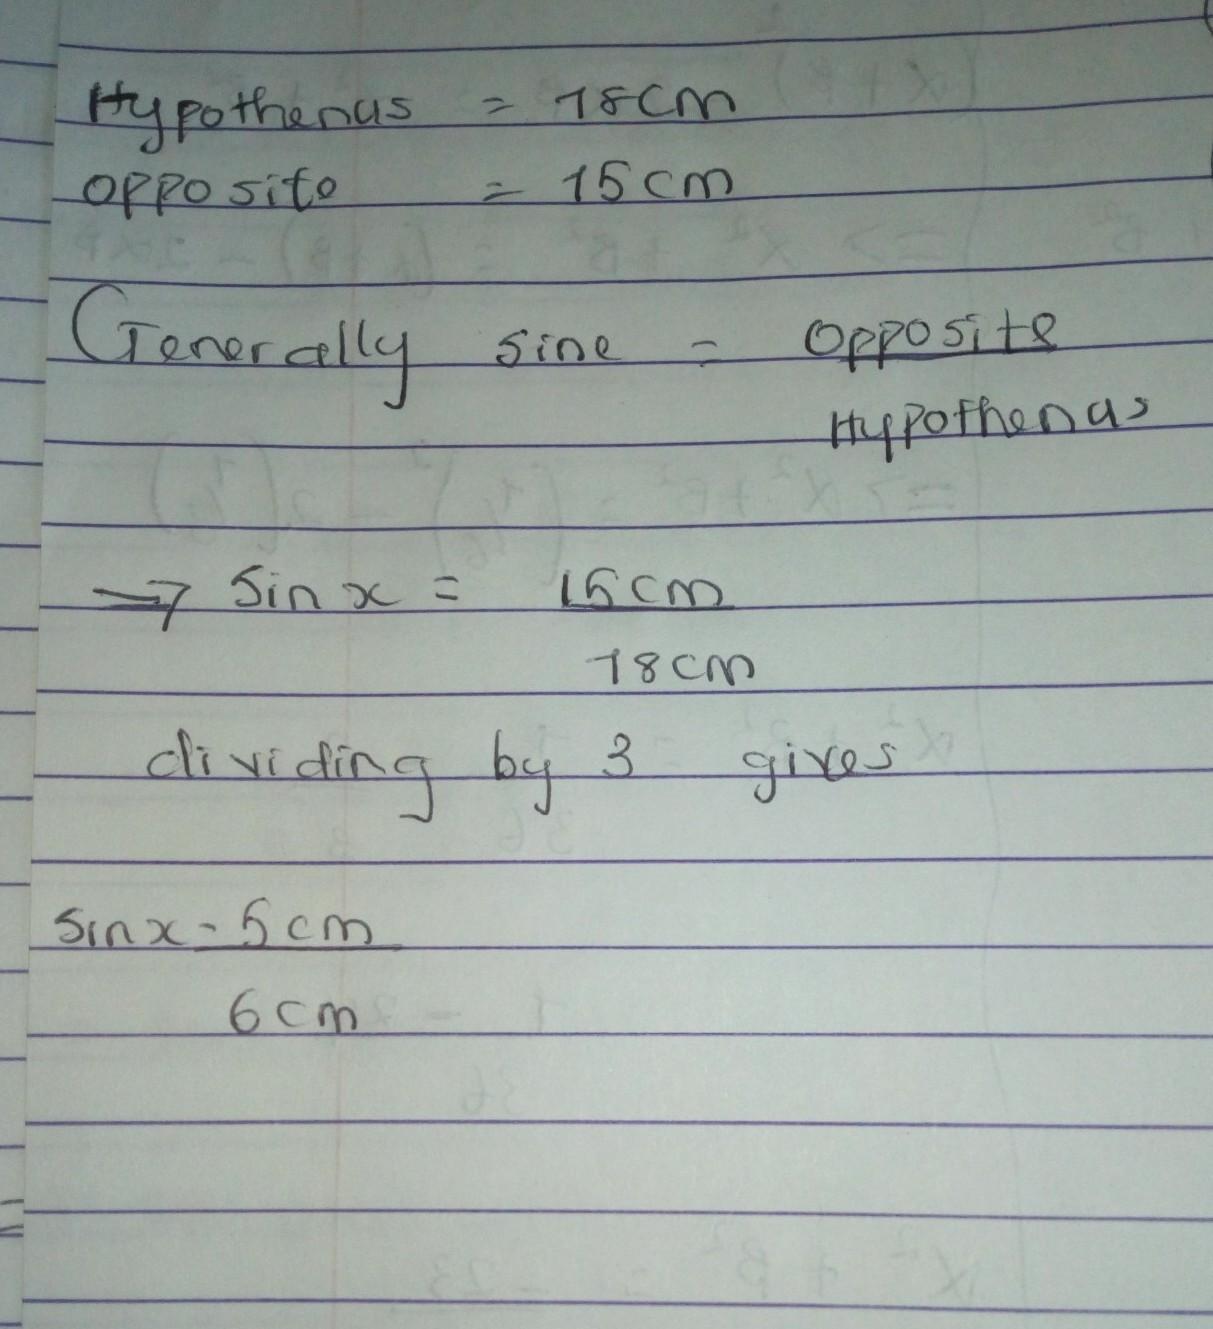 Hypothenus = 18cm
opposite = 15cm
Generally sine = opposite
Hypothenus
=> sin x = 15cm
18cm
dividing by 3 gives
sinx - 5cm
6cm